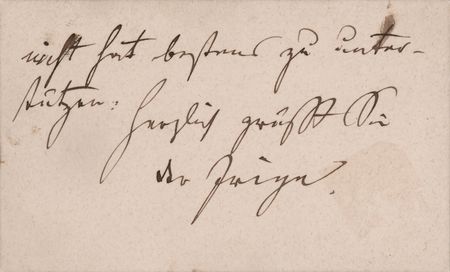 nicht hat bestens zu unter-
stützen. Herzlich grüßt Sie
der Ihrige.